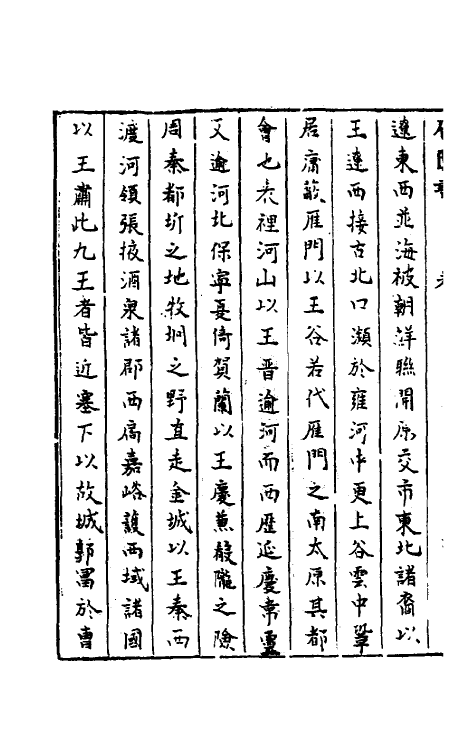 遼東西並海被朝鮮聯開原交市東北諸裔以
王遼西接古北口瀕於雍河中更上谷雲中鞏
居庸蔽雁門以王谷若代雁門之南太原其都
會也表裡河山以王晋逾河而西歷延慶常靈
又逾河北保寧夏倚賀蘭以王慶蒹殽隴之險
周秦都圻之地牧坰之野直走金城以王秦西
渡河領張掖酒泉諸郡西扃嘉峪護西域諸國
以王肅此九王者皆近塞下以故城郭畱於曹